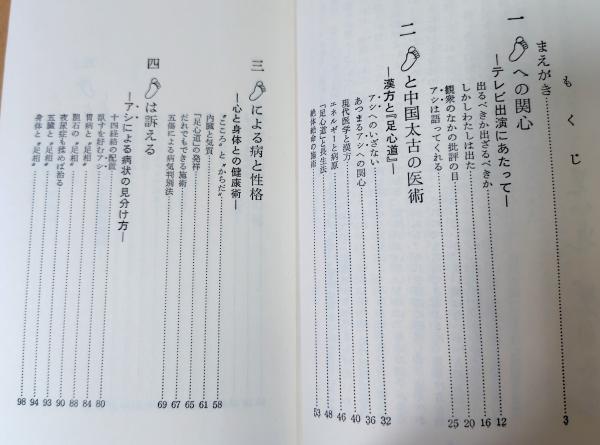 もくじ
まえがき……3
一 への関心
―テレビ出演にあたって―……12
出るべきか出ざるべきか……16
しかしわたしは出た……20
観衆のなかの批評の目……25
アシは語ってくれる
二 と中国太古の医術
―漢方と『足心道』―……32
アシへのいざない……36
あつまるアシへの関心……40
現代医学と漢方……46
エネルギーと病原……48
『足心道』と長生法……53
絶体絶命の施術
三 による病と性格
―心と身体との健康術―
“こころ”と“からだ”……58
内臓と気質……61
『足心道』の発祥……65
だれでもできる施術……67
五傷による病気判別法……69
四 は訴える
―アシによる病状の見分け方―
十四経絡の配置……80
臥すを好むアシ……84
胃病と“足相”……88
胆石の“足相”……90
夜尿症も揉めば治る……93
五臓と“足相”……94
身体と“足相”……98